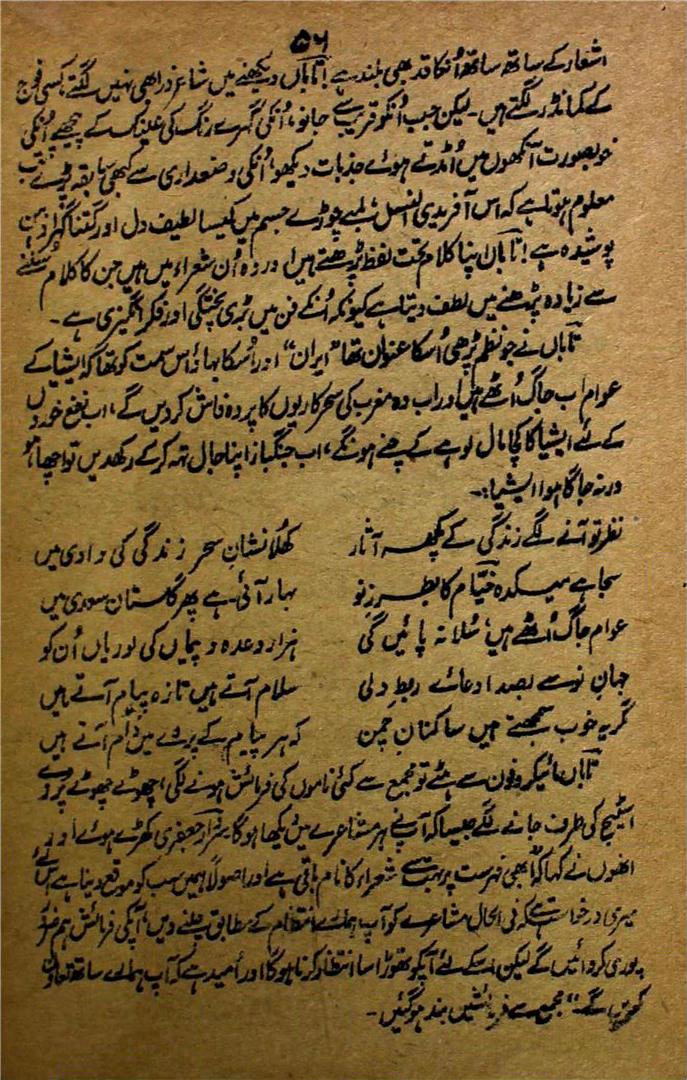 ۵۶
اشعار کے ساتھ ساتھ اُنکا قد بھی بلند ہے! تاباں دیکھنے میں شاعر ذرا بھی نہیں لگتے، کسی فوج
کے کمانڈر لگتے ہیں۔ لیکن جب اُنکو قریب سے جانو، اُنکی گہرے رنگ کی عینک کے پیچھے اُنکی
خوبصورت آنکھوں میں اُمڈتے ہوئے جذبات دیکھو، اُنکی وضعداری سے کبھی سابقہ پڑے تب
معلوم ہوتا ہے کہ اس آفریدی النسل لمبے چوڑے جسم میں کیسا لطیف دل اور کتنا گہرا ذہن
پوشیدہ ہے! تاباں اپنا کلام تحت لفظ پڑھتے ہیں اور وہ اُن شعراء میں ہیں جن کا کلام سُننے
سے زیادہ پڑھنے میں لطف دیتا ہے کیونکہ اُنکے فن میں بڑی پختگی اور فکر انگیزی ہے۔
تاباں نے جو نظم پڑھی اُسکا عنوان تھا "ایران" اور اُسکا بہاؤ اس سمت کو تھا کہ ایشیا کے
عوام اب جاگ اُٹھے ہیں اور اب وہ مغرب کی سحر کاریوں کا پردہ فاش کر دیں گے، اب نفع خوروں
کے لئے ایشیا کا کچا مال لوہے کے چنے ہونگے، اب جنگباز اپنا جال تہہ کر کے رکھدیں تو اچھا ہو
ورنہ جاگا ہوا ایشیا:۔
نظر تو آنے لگے زندگی کے کچھ آثار کھُلا نشانِ سحر زندگی کی وادی میں
سجا ہے میکدہ خیّام کا بطرزِ نو بہار آئی ہے پھر گلستانِ سعدی میں
عوام جاگ اُٹھے ہیں، سُلا نہ پائیں گی ہزار وعدہ و پیماں کی لوریاں اُن کو
جہانِ نو سے بصد ادعائے ربطِ دلی سلام آتے ہیں تازہ پیام آتے ہیں
گریہ خوب سمجھتے ہیں ساکنانِ چمن کہ ہر پیام کے پردے میں دام آتے ہیں
تاباں مائیکروفون سے ہٹے تو مجمع سے کئی ناموں کی فرمائش ہونے لگی، چھوٹے چھوٹے پُرزے
اسٹیج کی طرف جانے لگے جیسا کہ آپنے ہر مشاعرے میں دیکھا ہوگا۔ سردار جعفری کھڑے ہوئے اور
انھوں نے کہا کہ "ابھی فہرست پر بہت سے شعراء کا نام باقی ہے اور اصولاً ہمیں سب کو موقع دینا ہے اس لئے
میری درخواست ہے کہ فی الحال مشاعرے کو آپ ہمارے انتظام کے مطابق چلنے دیں، آپکی فرمائش ہم ضرور
پوری کروائیں گے لیکن اسکے لئے آپکو تھوڑا سا انتظار کرنا ہوگا اور اُمید ہے کہ آپ ہمارے ساتھ تعاون
کریں گے۔" مجمع سے فرمائشیں بند ہو گئیں۔